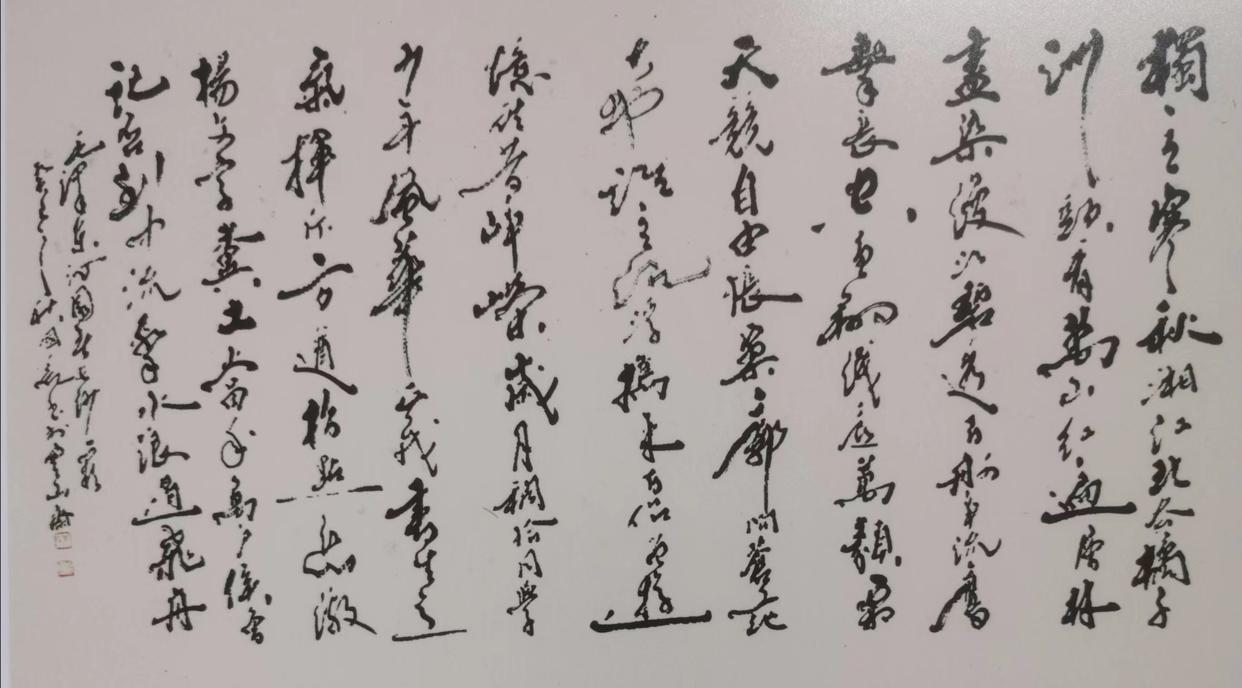 獨立寒秋湘江北去橘子
洲頭看萬山紅遍層林
盡染漫江碧透百舸爭流鷹
擊長空魚翔淺底萬類霜
天競自由悵寥廓問蒼茫
大地誰主沉浮攜來百侶曾遊
憶往昔崢嶸歲月稠恰同學
少年風華正茂書生意
氣揮斥方遒指點江山激
揚文字糞土當年萬戶侯曾
記否到中流擊水浪遏飛舟
毛澤東沁園春長沙